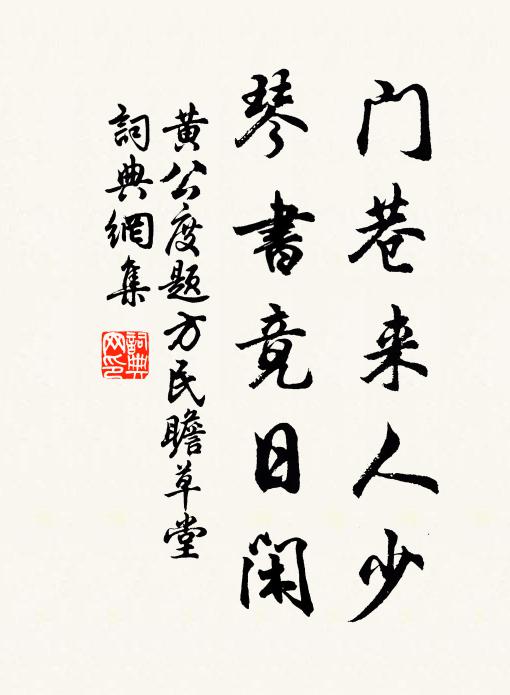 门巷来人少
琴書竟日闲
黄公度题方民瞻草堂
詞典網集
詞典網印